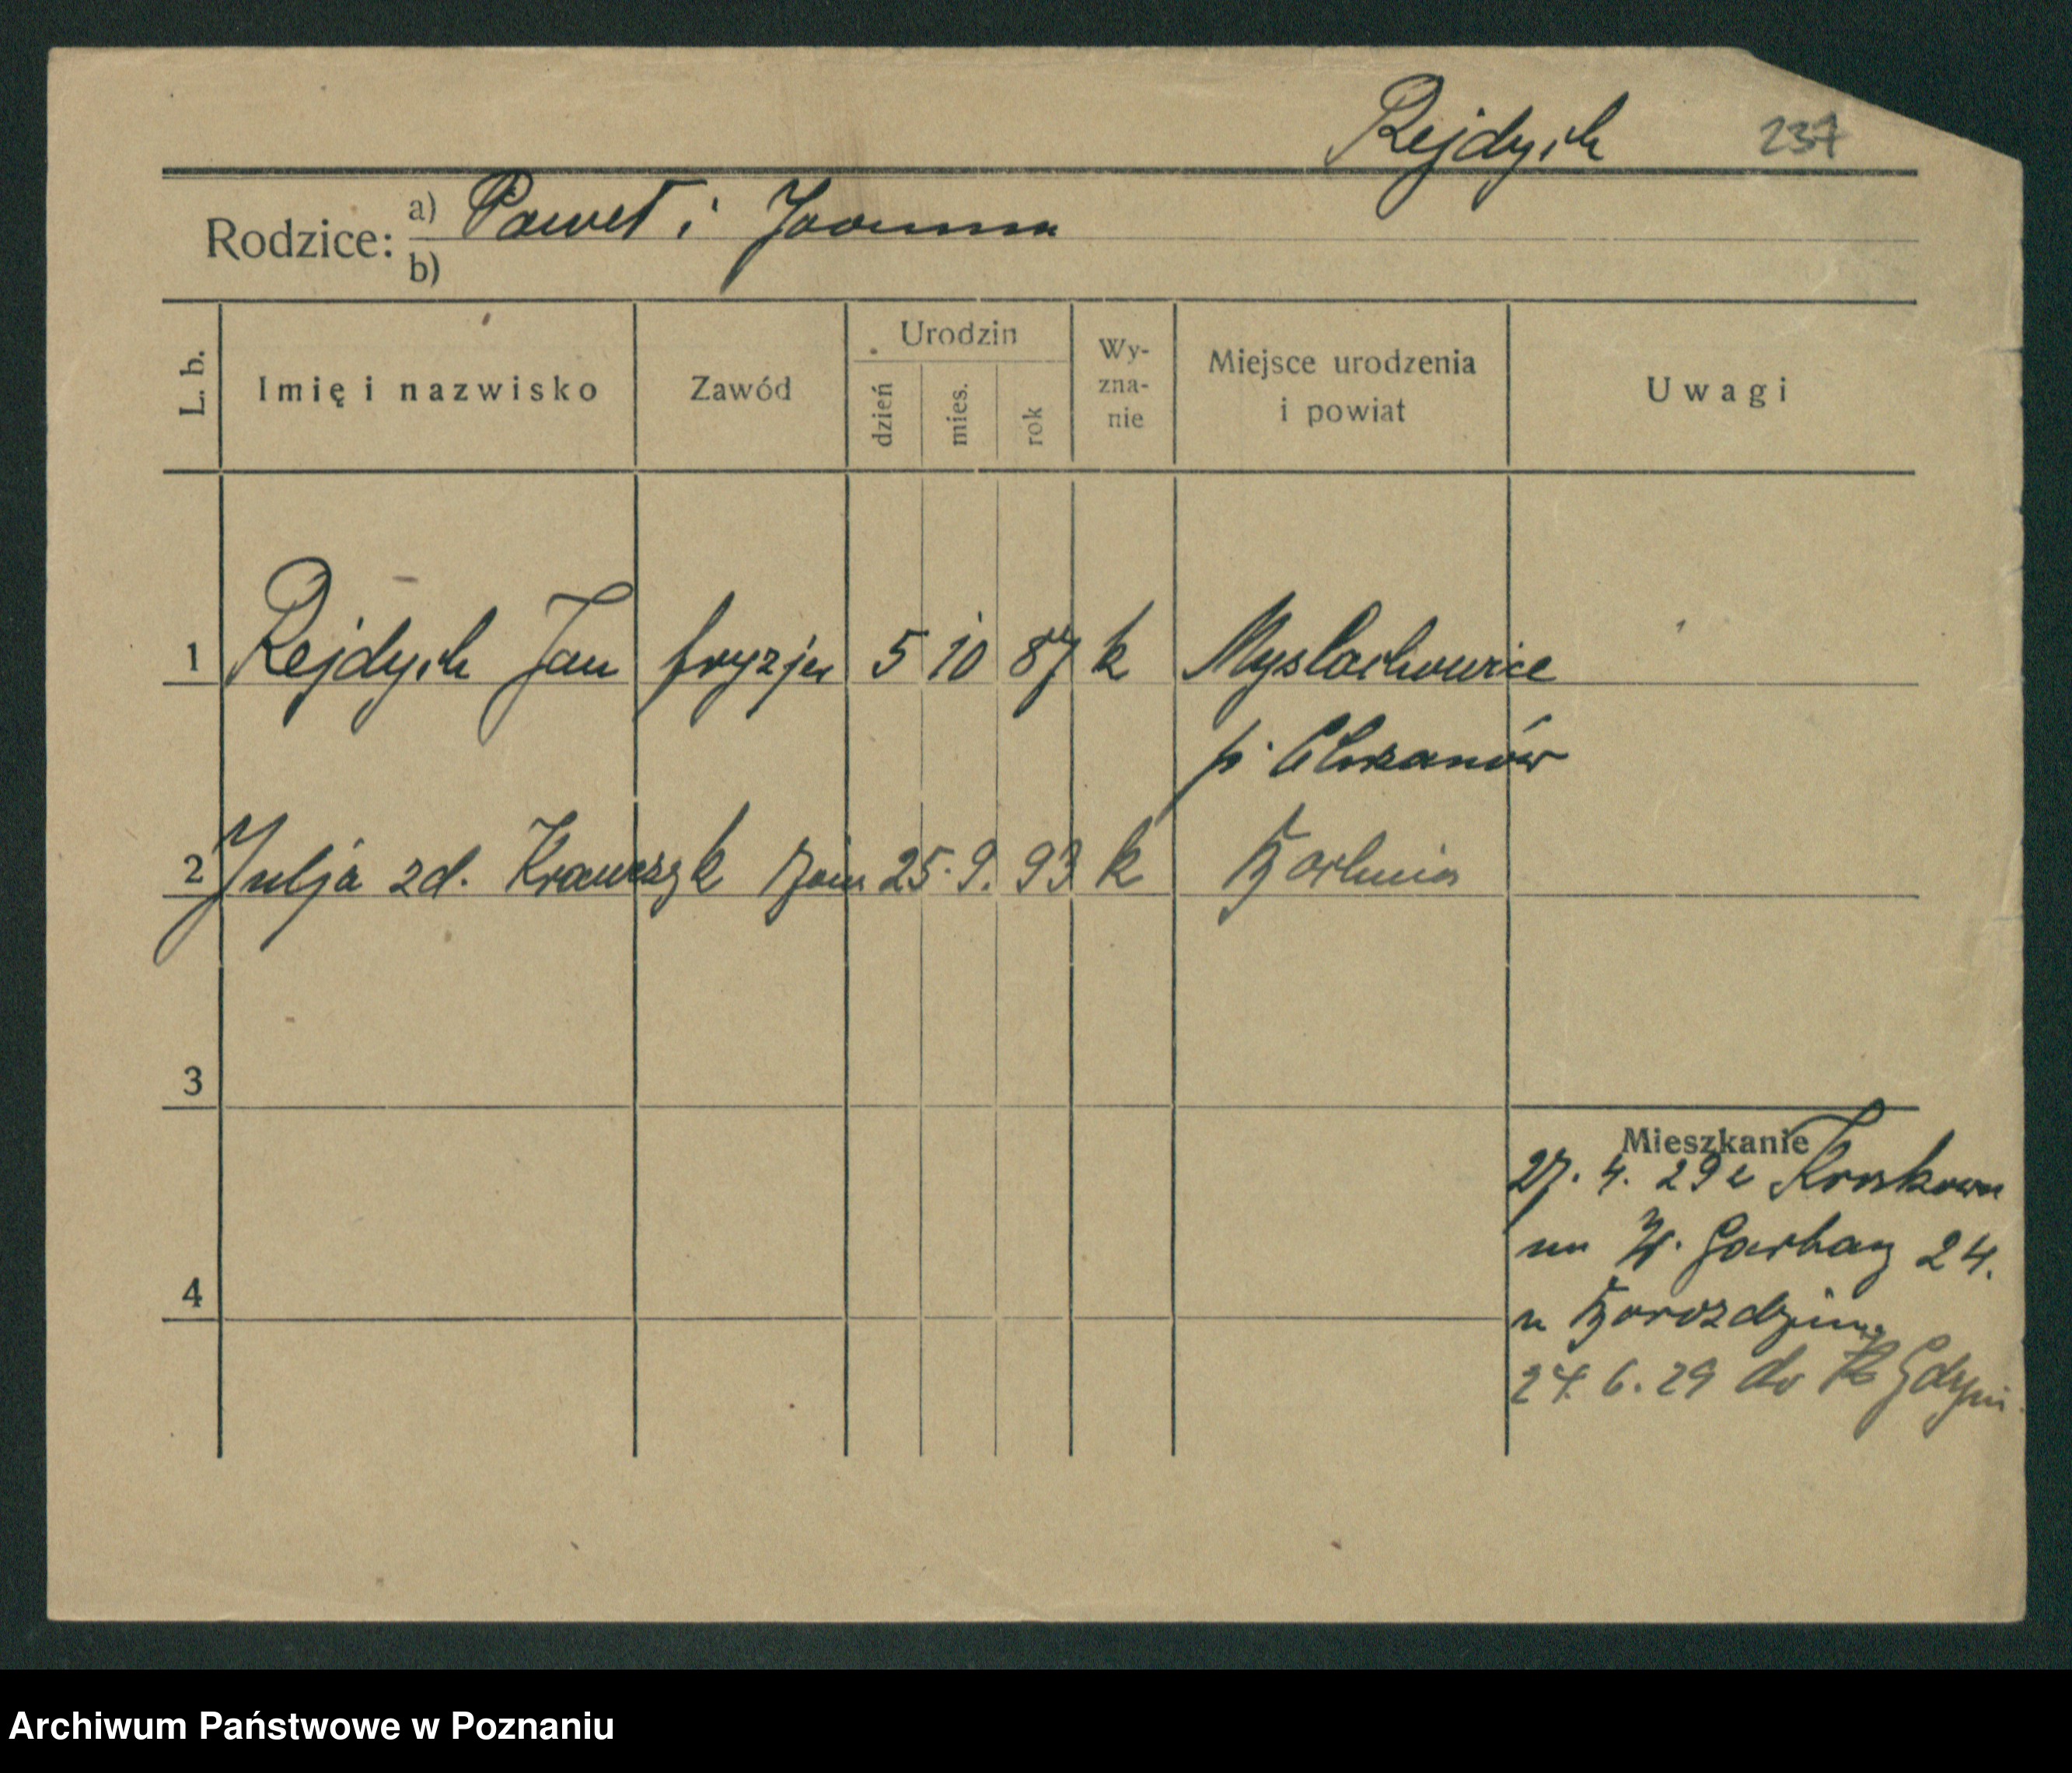 Rejdych 237
Rodzice: a) Paweł i Joanna
b)
L. b. Imię i nazwisko Zawód Urodzin dzień mies. rok Wy-zna-nie Miejsce urodzenia i powiat Uwagi
1 Rejdych Jan fryzjer 5 10 87 k Myslachowice
p. Chrzanów
2 Julja zd. Krawczyk 25. 9. 93 k Bochnia
3
Mieszkanie
27. 4. 29 z Krakowa
na W. Garbary 24.
4
u
24. 6. 29 do Gdyni
Archiwum Państwowe w Poznaniu